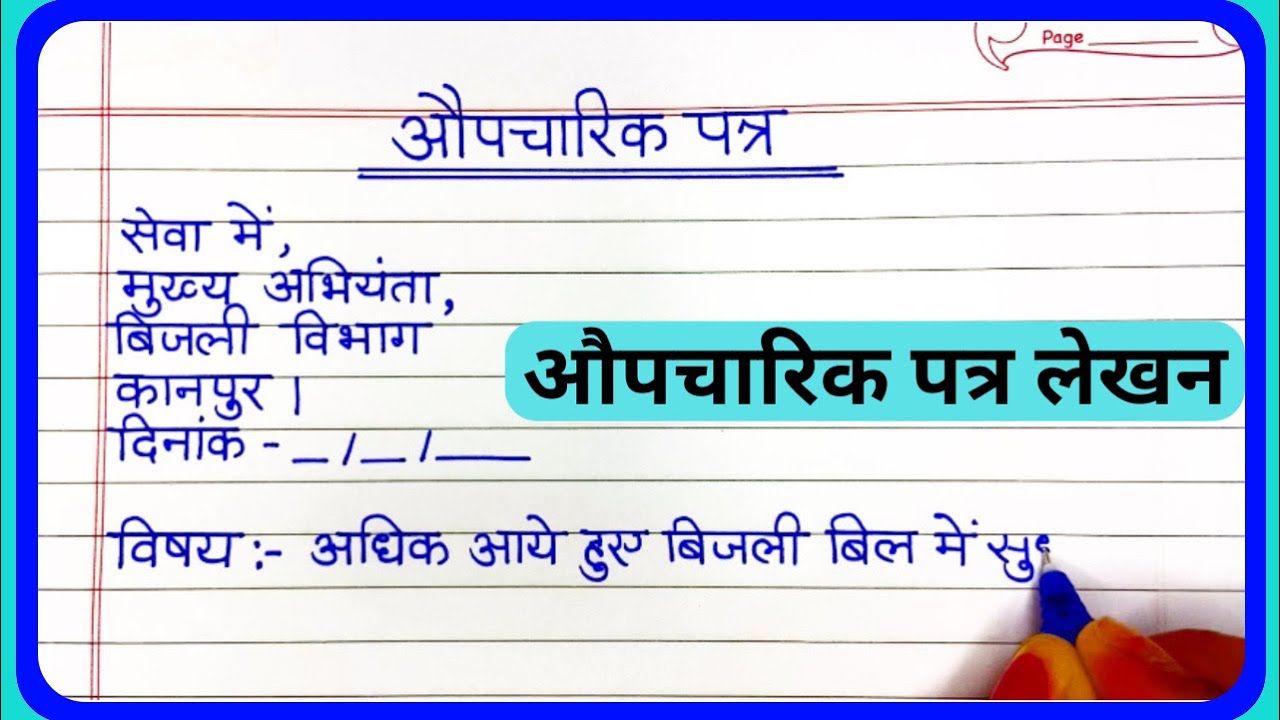 Page
औपचारिक पत्र
सेवा में,
मुख्य अभियंता,
बिजली विभाग
औपचारिक पत्र लेखन
कानपुर।
दिनांक - _/_/__
विषय :- अधिक आये हुए बिजली बिल में